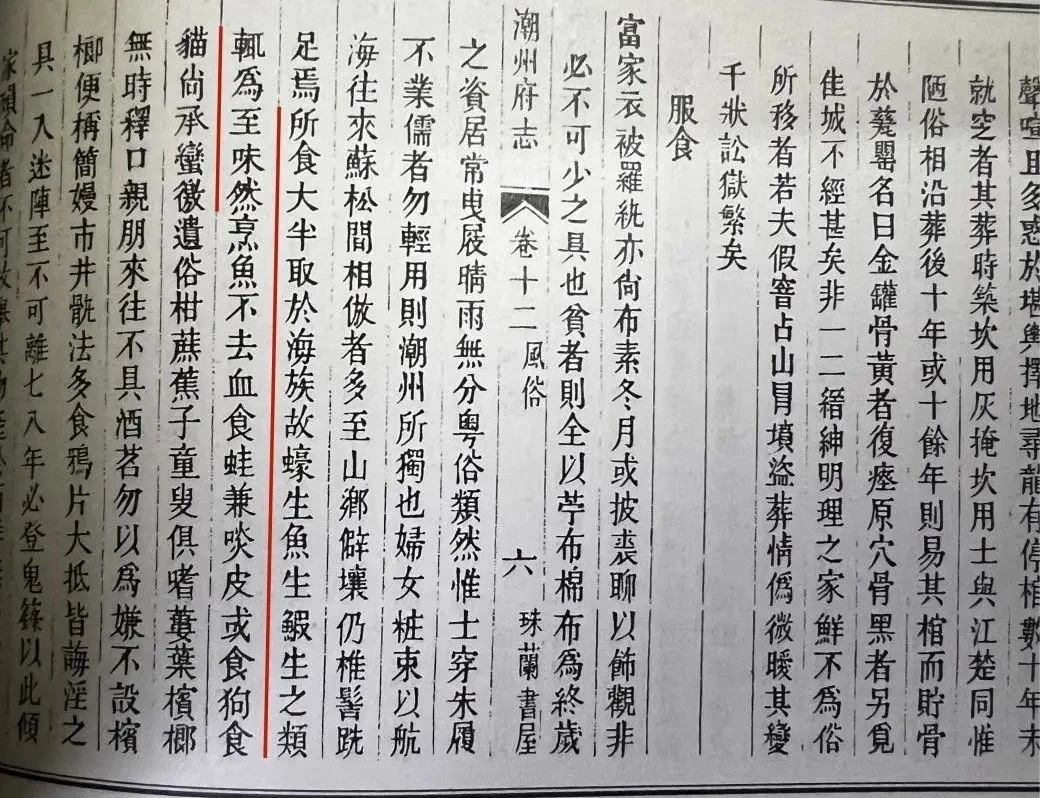 聲喧且多惑於堪輿擇地尋龍有停棺數十年未
就窆者其葬時築坎用灰掩坎用土與江楚同惟
陋俗相沿葬後十年或十餘年則易其棺而貯骨
於甕罌名曰金罐骨黃者復瘞原穴骨黑者另覓
佳城不經甚矣非一二縉紳明理之家鮮不為俗
所移者若夫假窨占山冒墳盜葬情偽微曖其變
千狀訟獄繁矣
服食
富家衣被羅紈亦尙布素冬月或披裘聊以飾觀非
必不可少之具也貧者則全以苧布棉布為終歲
潮州府志 卷十二 風俗 六 珠蘭書屋
之資居常曳屐晴雨無分粵俗類然惟士穿朱履
不業儒者勿輕用則潮州所獨也婦女粧束以航
海往來蘇松間相倣者多至山鄉僻壤仍椎髻跣
足焉所食大半取於海族故蠔生魚生鰕生之類
輒為至味然烹魚不去血食蛙兼啖皮或食狗食
貓尙承蠻徼遺俗柑蔗蕉子童叟俱嗜蔞葉檳榔
無時釋口親朋來往不具酒茗勿以為嫌不設檳
榔便稱簡嫚市井骩法多食鴉片大抵皆誨淫之
具一入迷陣至不可離七八年必登鬼籙以此傾
家